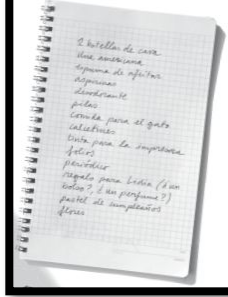 2 botellas de cava
Una americana
espuma de afeitar
aspirinas
desodorante
pilas
comida para el gato
calcetines
tinta para la impresora
folios
periódico
regalo para Lidia (¿un
bolso?, ¿un perfume?)
pastel de cumpleaños
flores